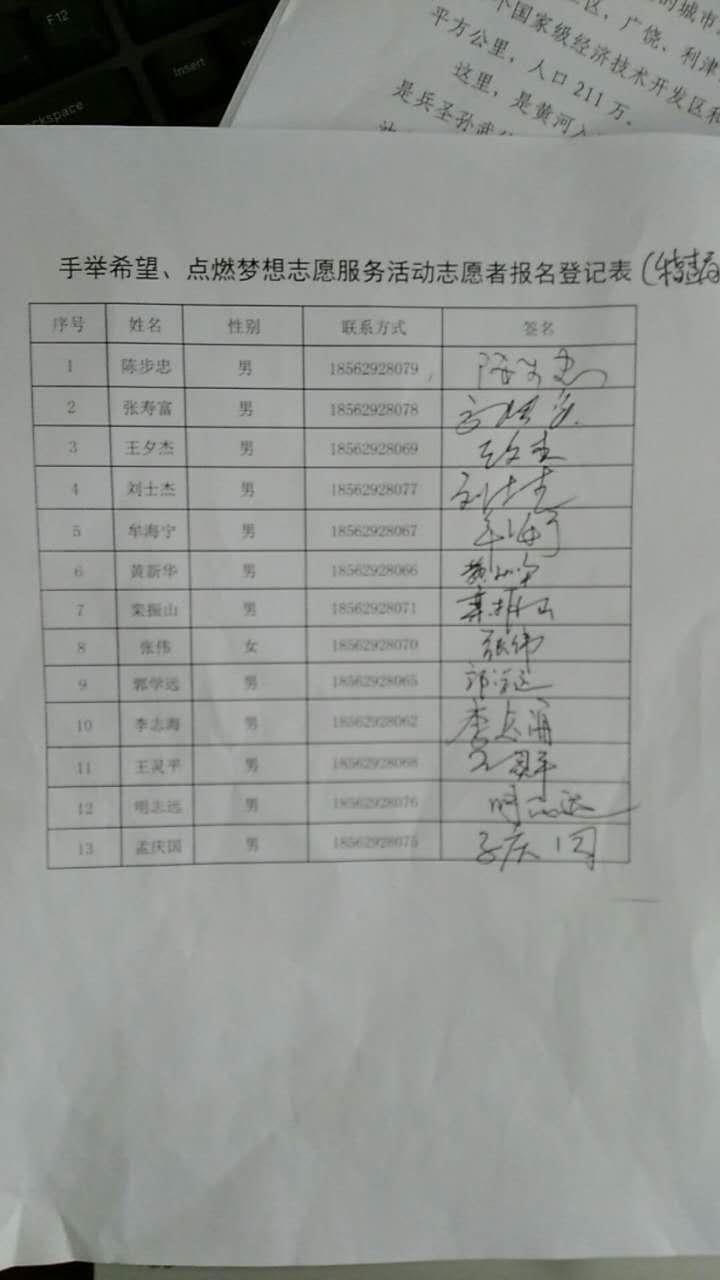 F12
Insert
ckspace
区，广饶、利津
个国家级经济技术开发区和
平方公里，人口211万。
这里，是黄河入
是兵圣孙武
手举希望、点燃梦想志愿服务活动志愿者报名登记表
序号 姓名 性别 联系方式 签名
1 陈步忠 男 18562928079 陈步忠
2 张寿富 男 18562928078
3 王夕杰 男 18562928069 王夕杰
4 刘士杰 男 18562928077 刘士杰
5 牟海宁 男 18562928067 牟海宁
6 黄新华 男 18562928066 黄新华
7 栾振山 男 18562928071 栾振山
8 张伟 女 18562928070 张伟
9 郭学远 男 18562928065 郭学远
10 李志海 男 18562928062 李志海
11 王灵平 男 18562928068
12 明志远 男 18562928076 明志远
13 孟庆国 男 18562928075 孟庆国